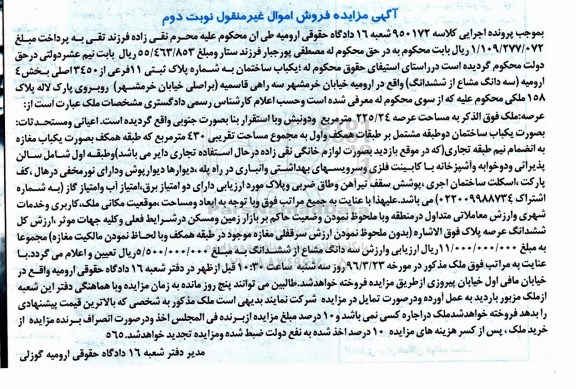 آگهی مزایده فروش اموال غیرمنقول نوبت دوم
بموجب پرونده اجرایی کلاسه ۹۵۰۱۷۲ شعبه ۱۶ دادگاه حقوقی ارومیه طی ان محکوم علیه محرم نقی زاده فرزند تقی به پرداخت مبلغ
۱/۱۰۹/۲۷۷/۰۷۲ ریال بابت محکوم به در حق محکوم له مصطفی پورجبار فرزند ستار ومبلغ ۵۵/۴۶۳/۸۵۳ ریال بابت نیم عشردولتی درحق
دولت محکوم گردیده است درراستای استیفای حقوق محکوم له ؛یکباب ساختمان به شماره پلاک ثبتی ۱۱فرعی از ۳۴۵۰ اصلی بخش ۴
ارومیه (سه دانگ مشاع از ششدانگ) واقع در ارومیه خیابان خرمشهر سه راهی قاسمیه (براصلی خیابان خرمشهر) روبروی پارک لاله پلاک
۱۵۸ ملکی محکوم علیه که از سوی محکوم له معرفی شده است وحسب اعلام کارشناس رسمی دادگستری مشخصات ملک عبارت است از:
عرصه:ملک فوق الذکر به مساحت عرصه ۲۲۵/۲۴ مترمربع ودونبش وبا استقرار بنا بصورت جنوبی واقع گردیده است. اعیانی ومستحدثات:
بصورت یکباب ساختمان دوطبقه مشتمل بر طبقات همکف واول به مجموع مساحت تقریبی ۴۳۰ مترمربع که طبقه همکف بصورت یکباب مغازه
به انضمام نیم طبقه تجاری(که در موقع بازدید بصورت لوازم خانگی نقی زاده درحال استفاده تجاری دایر می باشد)وطبقه اول شامل سالن
پذیرانی ودوخوابه وآشپزخانه با کابینت فلزی وسرویسهای بهداشتی وانباری در راه پله ،دیوارها دیوارپوش ودارای نورمخفی درهال ،کف
پارکت ،اسکلت ساختمان اجری ،پوشش سقف تیرآهن وطاق ضربی وپلاک مورد ارزیابی دارای دو امتیاز برق،امتیاز آب وامتیاز گاز (به شماره
اشتراک ۰۲۲۰۰۹۹۸۸۷۳۴) می باشد.علیهذا با عنایت به جمیع مراتب فوق وبا توجه به ابعاد ومساحت ،موقعیت مکانی ملک،کاربری وخدمات
شهری وارزش معاملاتی متداول درمنطقه وبا ملحوظ نمودن وضعیت حاکم بر بازار زمین ومسکن درشرایط فعلی وکلیه جهات موثر ،ارزش کل
ششدانگ عرصه پلاک فوق الاشاره (بدون ملحوظ نمودن ارزش سرقفلی مغازه موجود در طبقه همکف وبا لحاظ نمودن مالکیت مغازه) مجموعا
به مبلغ ۱۱/۰۰۰/۰۰۰/۰۰۰ریال ارزیابی وارزش سه دانگ مشاع از ششدانگ به مبلغ ۵/۵۰۰/۰۰۰/۰۰۰ریال تعیین و اعلام می گردد.با
عنایت به مراتب فوق ملک مذکور در مورخه ۹۶/۳/۲۳روز سه شنبه ساعت ۱۰:۳۰ قبل ازظهر در دفتر شعبه ۱۶ دادگاه حقوقی ارومیه واقع در
خیابان مافی اول خیابان پیروزی ازطریق مزایده فروخته خواهدشد.طالبین می توانند پنج روز مانده به زمان مزایده وبا هماهنگی دفتر این شعبه
ازملک مزبور باردید به عمل آورده ودرصورت تمایل در مزایده شرکت نمایند بدیهی است ملک مذکور به شخصی که بالاترین قیمت پیشنهادی
را بدهد فروخته خواهدشدملک دراجاره کسی نمی باشد و ۱۰ درصد مبلغ مزایده ازبرنده فی المجلس اخذ ودرصورت انصراف برنده مزایده از
خرید ملک ، پس از کسر هزینه های مزایده ۱۰ درصد اخذ شده به نفع دولت ضبط شده ومزایده تجدید خواهدشد.۵۶۵
مدیر دفتر شعبه ۱۶ دادگاه حقوقی ارومیه گوزلی